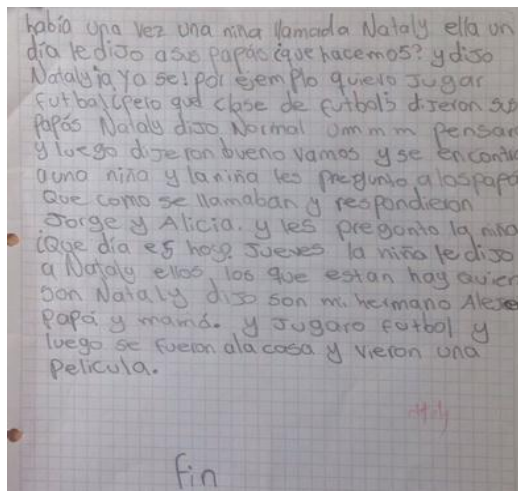 había una vez una niña llamada Nataly ella un
día le dijo a sus papás ¿que hacemos? y dijo
Nataly ¡a Ya se! por ejemplo quiero Jugar
futbal ¿pero que clase de futbol? dijeron sus
Papás Nataly dijo Normal Ummm Pensar
y luego dijeron bueno vamos y se encontr
auna niña y la niña les pregunto a los papá
Que como se llamaban y respondieron
Jorge y Alicia. y les pregonto la niña
¿Que dia es hoy? Jueves la niña le dijo
a Nataly ellos los que estan hay quier
son Nataly dijo son mi hermano Aleje
Papá y mamá. y Jugaro futbol y
luego se fueron ala casa y vieron una
Pelicula.
fin